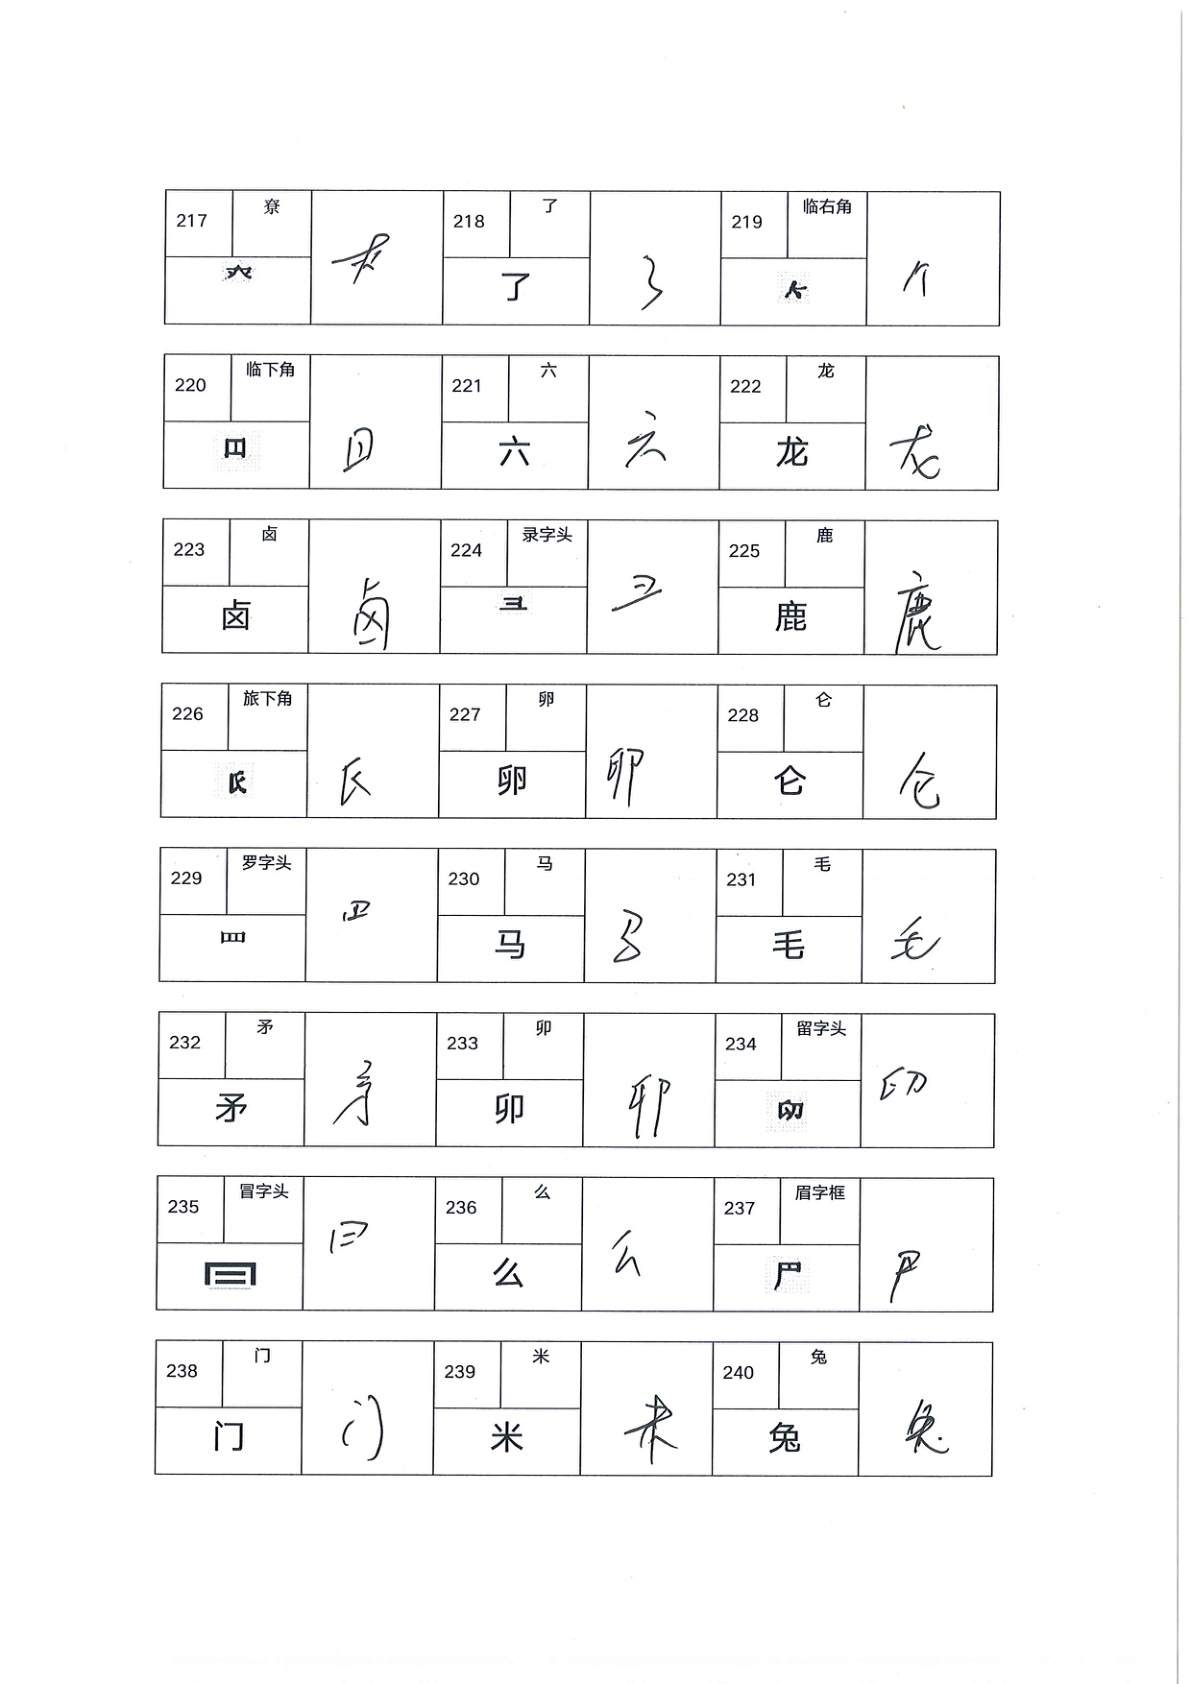 217 尞 218 了 219 临右角
了 了 个
220 临下角 221 六 222 龙
六 六 龙 龙
223 卤 224 录字头 225 鹿
卤 卤 彐 鹿 鹿
226 旅下角 227 卵 228 仑
卵 卵 仑 仑
229 罗字头 230 马 231 毛
罒 罒 马 马 毛 毛
232 矛 233 卯 234 留字头
矛 矛 卯 卯
235 冒字头 236 么 237 眉字框
么 么
238 门 239 米 240 兔
门 门 米 米 兔 兔